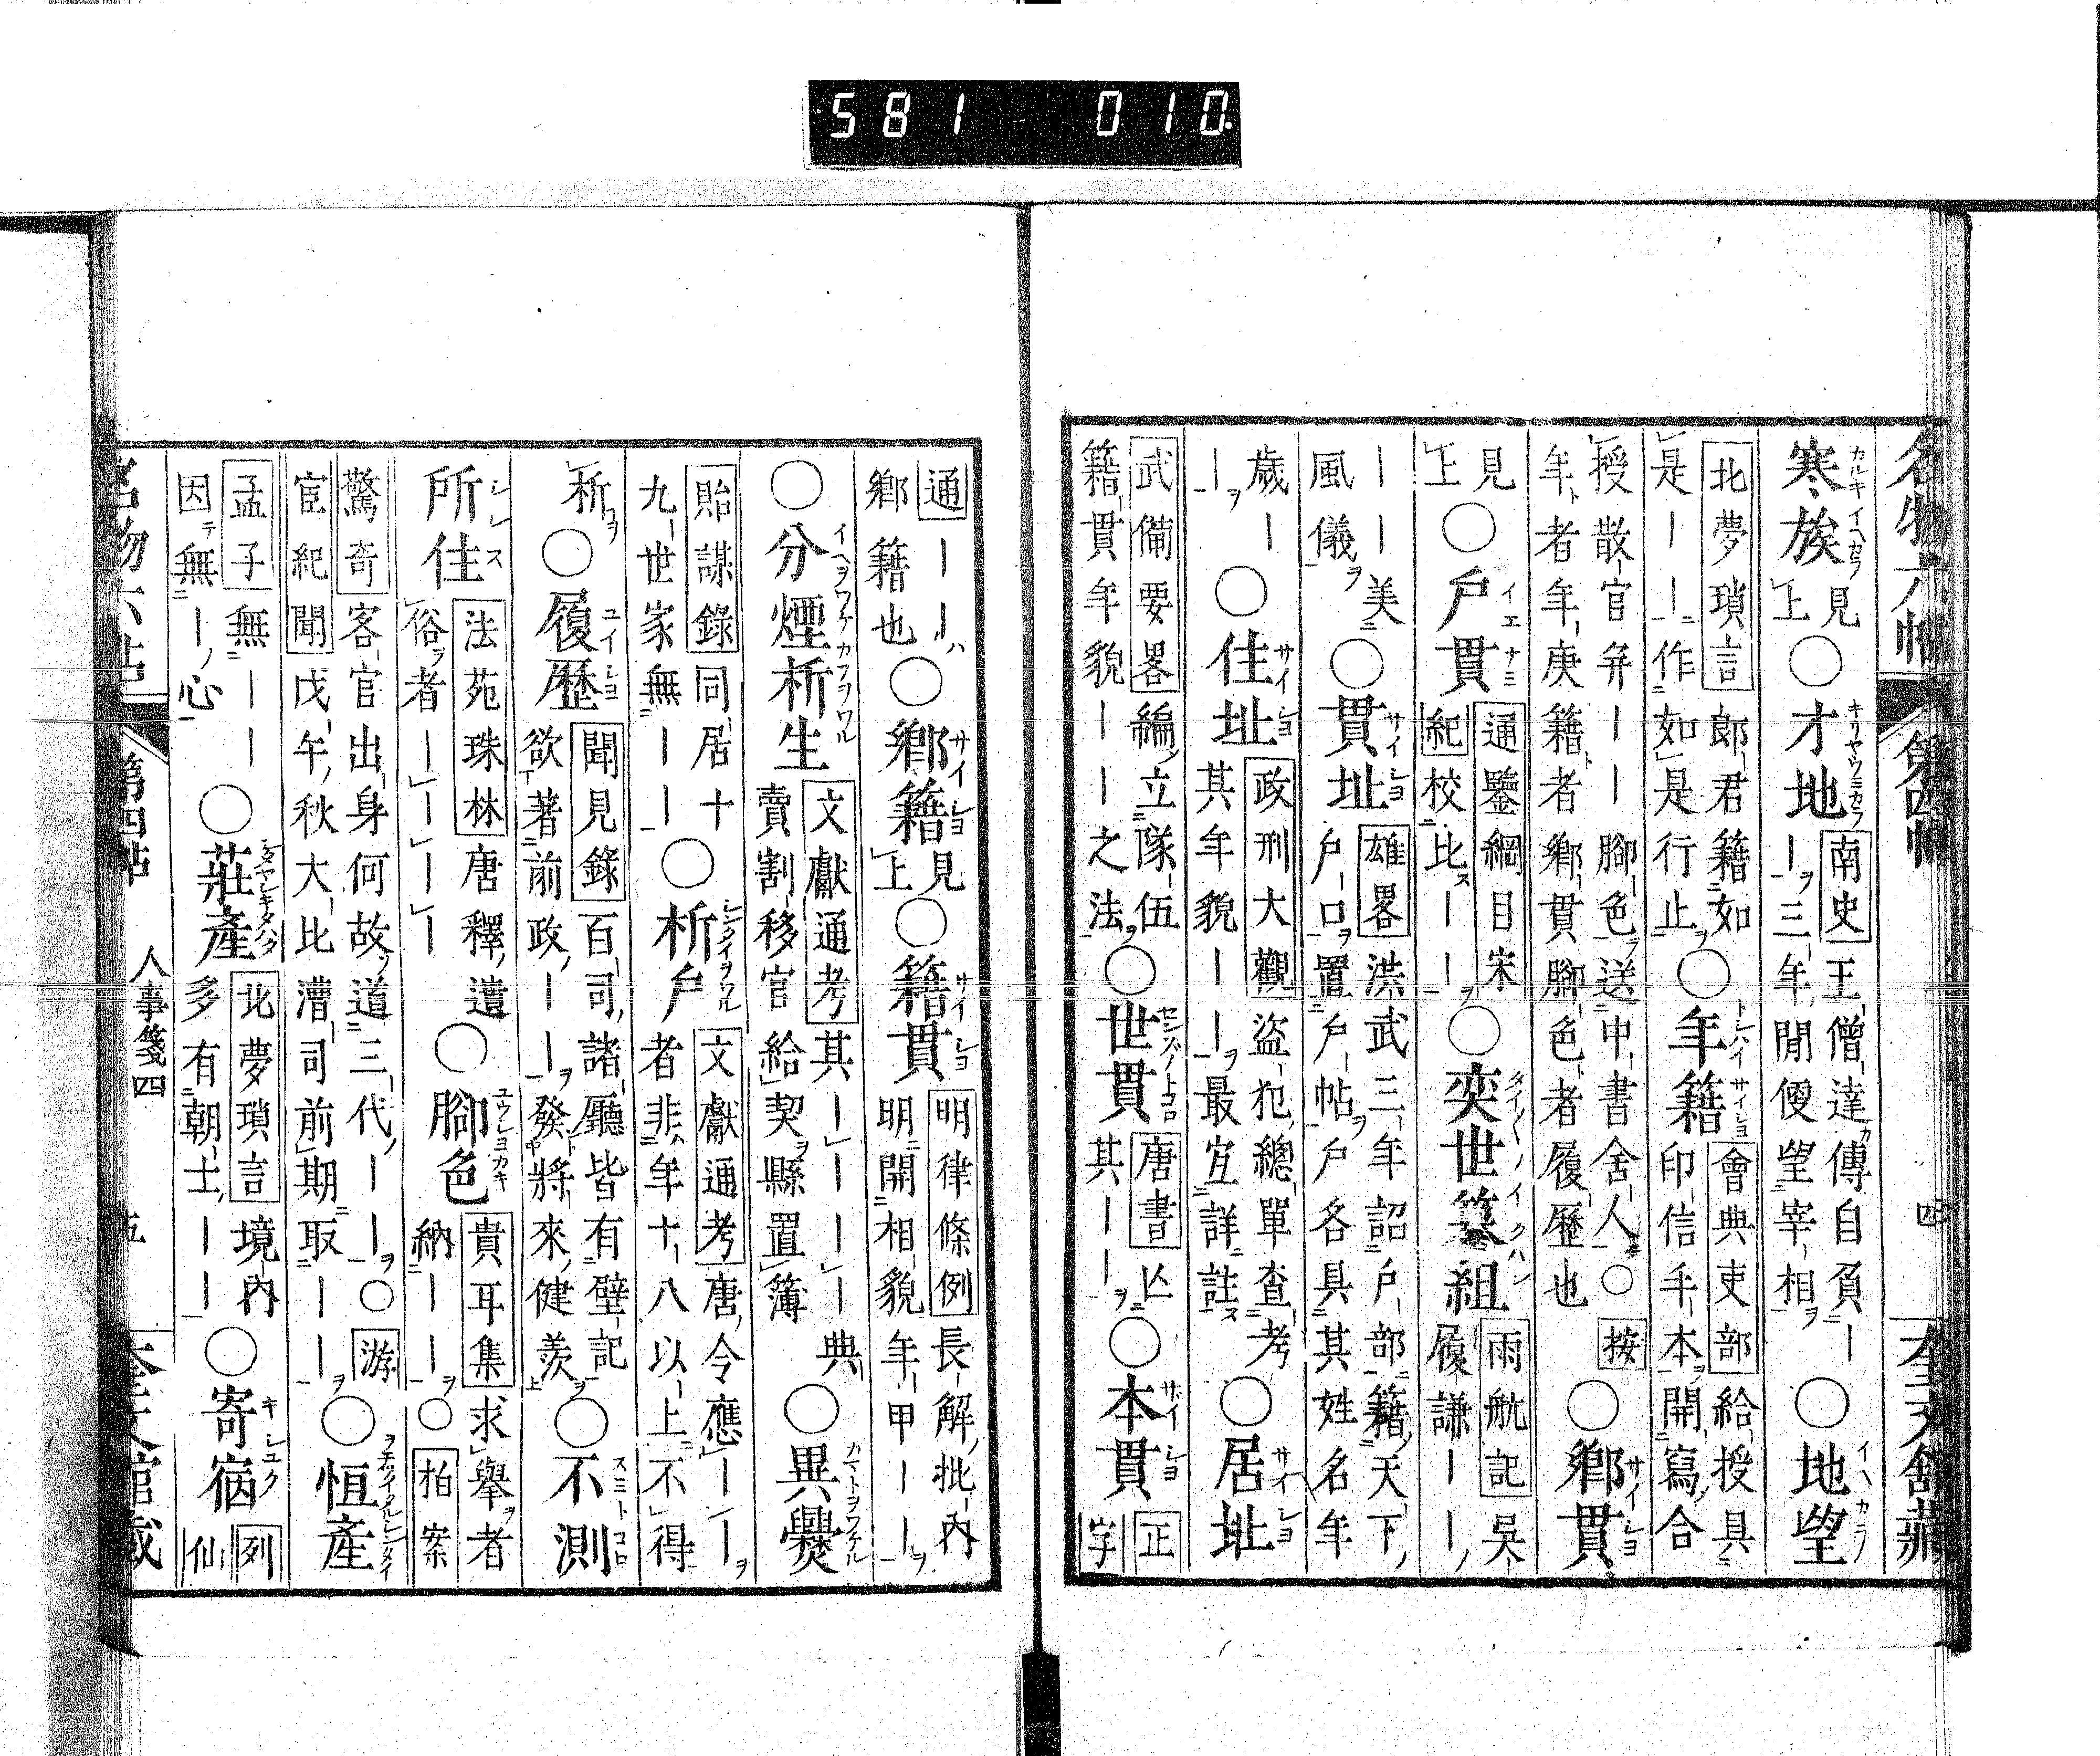 581 010
名物六帖 第四帖 四 奎文館藏
寒族 見上○才地 南史王僧達傳自負｜｜三年間便望宰相○地望
北夢瑣言郎君籍如是｜｜作如是行止○年籍 會典吏部給授具印信手本開寫合
授散官并｜｜脚色送中書舍人○按年者年庚籍者鄉貫脚色者履歷也○鄉貫
見上○戶貫 通鑒綱目宋紀校比｜｜○奕世簒組 雨航記吳履謙｜｜
｜｜美風儀○貫址 雄畧洪武三年詔戶部籍天下戶口置戶帖戶各具其姓名年
歲｜｜○住址 政刑大觀盜犯總單查考其年貌｜｜最宜詳註○居址
武備要畧編立隊伍籍貫年貌｜｜之法○世貫 唐書亾其｜｜○本貫 正字
通｜｜鄉籍也○鄉籍 見上○籍貫 明律條例長解批內明開相貌年甲｜｜
○分煙析生 文獻通考其｜｜｜｜典賣割移官給契縣置簿○異爨
貽謀錄同居十九世家無｜｜○析戶 文獻通考唐令應｜｜者非年十八以上不得
析○履歷 聞見錄百司諸廳皆有壁記欲著前政｜｜發將來健羨○不測
所住 法苑珠林唐釋遺俗者｜｜｜｜○脚色 貴耳集求舉者納｜｜○柏案
驚奇客官出身何故道三代｜｜○游宦紀聞戊午秋大比漕司前期取｜｜○恒產
孟子無｜｜因無｜心○莊產 北夢瑣言境內多有朝士｜｜○寄宿 列仙
名物六帖 第四帖 人事箋四 五 奎文館藏